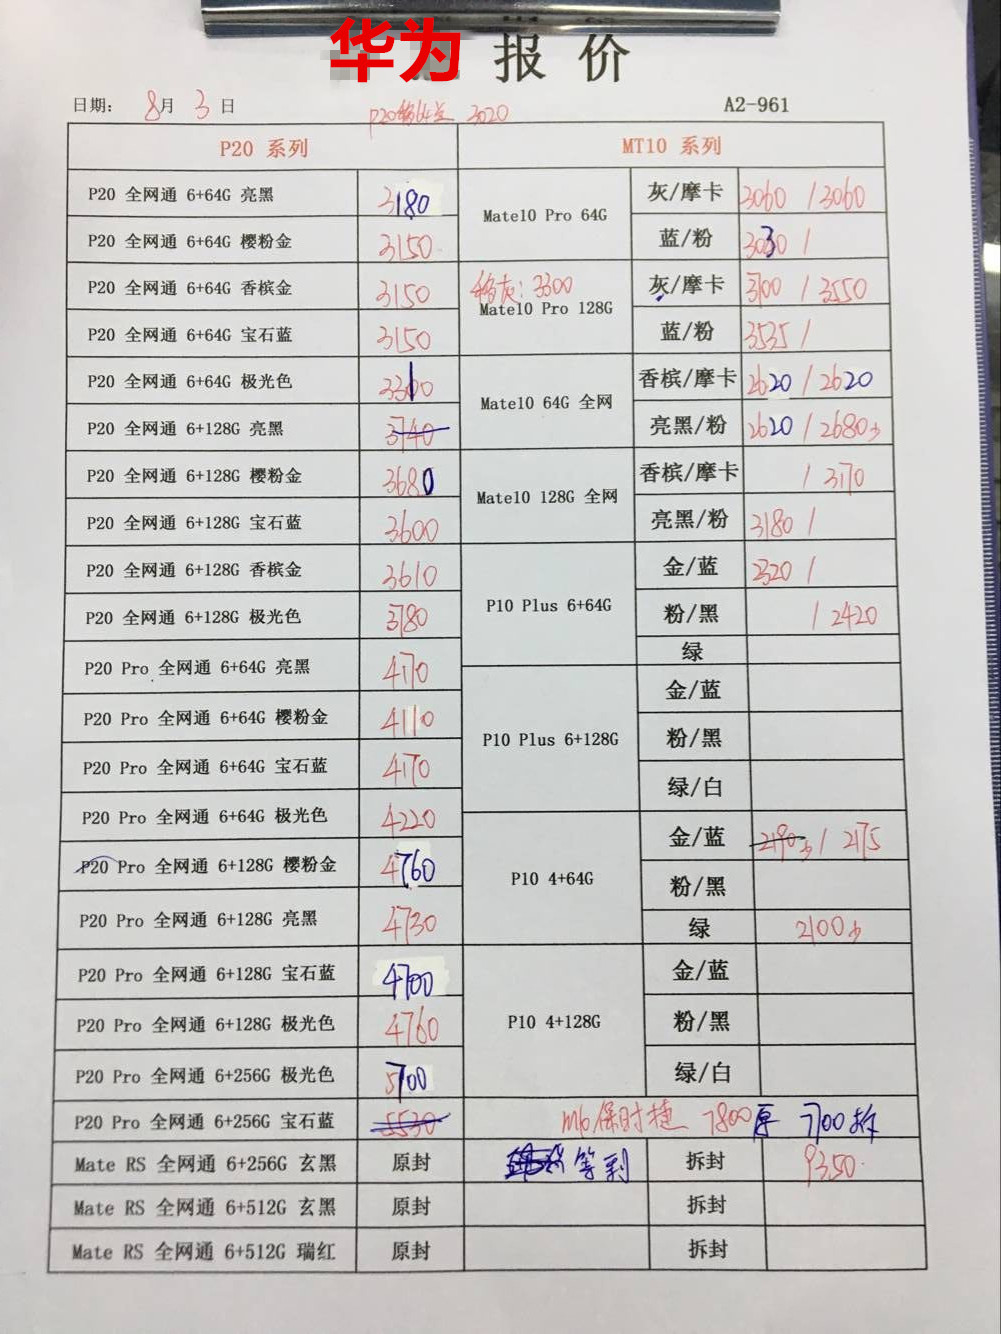 华为 报价
日期: 8月 3日 A2-961
3020
P20 系列 MT10 系列
P20 全网通 6+64G 亮黑 3180
P20 全网通 6+64G 樱粉金 3150
P20 全网通 6+64G 香槟金 3150
P20 全网通 6+64G 宝石蓝 3150
P20 全网通 6+64G 极光色
P20 全网通 6+128G 亮黑 3740
P20 全网通 6+128G 樱粉金 3680
P20 全网通 6+128G 宝石蓝 3600
P20 全网通 6+128G 香槟金 3610
P20 全网通 6+128G 极光色 3780
P20 Pro 全网通 6+64G 亮黑 4170
P20 Pro 全网通 6+64G 樱粉金 4110
P20 Pro 全网通 6+64G 宝石蓝 4170
P20 Pro 全网通 6+64G 极光色 4220
P20 Pro 全网通 6+128G 樱粉金 4760
P20 Pro 全网通 6+128G 亮黑 4730
P20 Pro 全网通 6+128G 宝石蓝 4700
P20 Pro 全网通 6+128G 极光色 4760
P20 Pro 全网通 6+256G 极光色 5700
P20 Pro 全网通 6+256G 宝石蓝 5530
Mate10 Pro 64G
灰/摩卡 3060 / 3060
蓝/粉 3030 /
移灰: 3300
Mate10 Pro 128G
灰/摩卡 3100 / 3550
蓝/粉 3535 /
Mate10 64G 全网
香槟/摩卡 2620 / 2620
亮黑/粉 2620 / 2680少
Mate10 128G 全网
香槟/摩卡 / 3170
亮黑/粉 3180 /
P10 Plus 6+64G
金/蓝 2320 /
粉/黑 / 2420
绿
P10 Plus 6+128G
金/蓝
粉/黑
绿/白
P10 4+64G
金/蓝 2190少 / 2175
粉/黑
绿 2100少
P10 4+128G
金/蓝
粉/黑
绿/白
M6保时捷 7800原 7700拆
Mate RS 全网通 6+256G 玄黑 原封 等到 拆封 9350
Mate RS 全网通 6+512G 玄黑 原封 拆封
Mate RS 全网通 6+512G 瑞红 原封 拆封